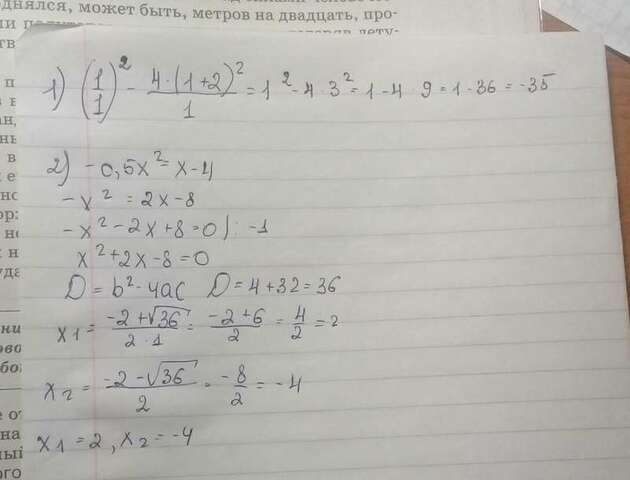 однялся, может быть, метров на двадцать, про-
1) (1/1)² - 4·(1+2)²/1 = 1² - 4·3² = 1 - 4 9 = 1 - 36 = -35
2) -0,5x² = x - 4
-x² = 2x - 8
-x² - 2x + 8 = 0 | : -1
x² + 2x - 8 = 0
D = b² - 4ac D = 4 + 32 = 36
x1 = -2+√36/2·1 = -2+6/2 = 4/2 = 2
x2 = -2-√36/2 = -8/2 = -4
x1 = 2, x2 = -4